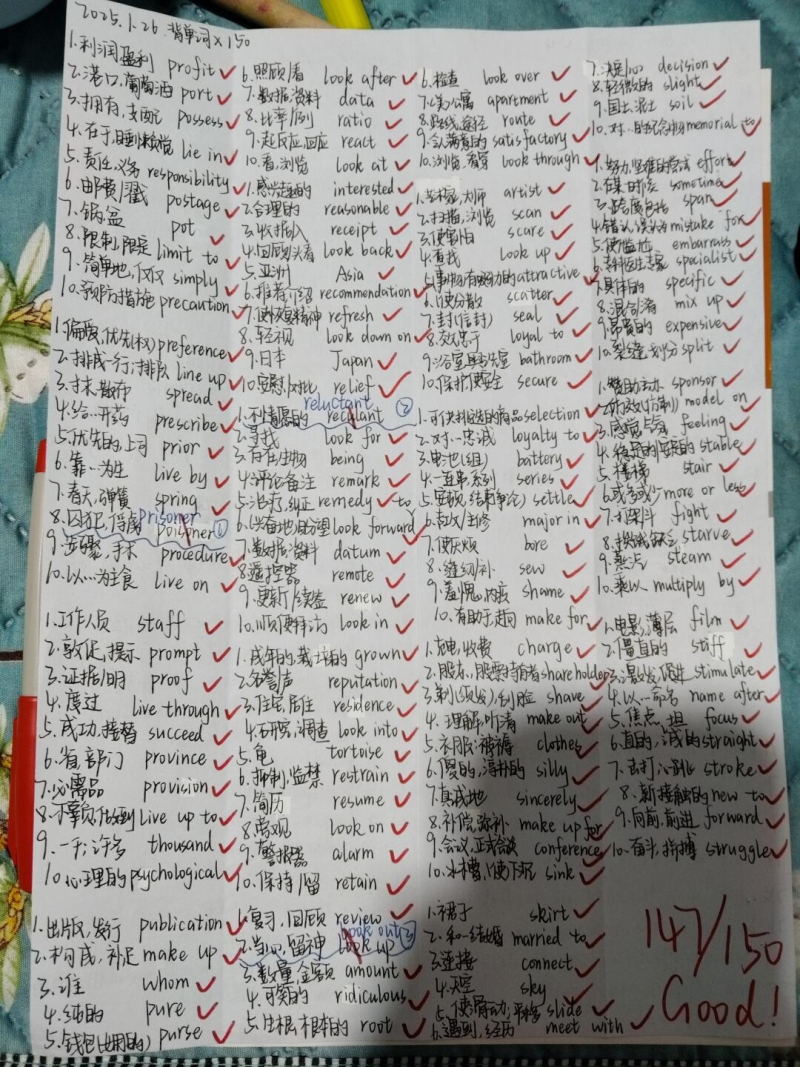 2025.1.26 背单词×150
1.利润盈利 profit
2.港口,葡萄酒 port
3.拥有,支配 possess
4.在于,睡懒觉 lie in
5.责任,义务 responsibility
6.邮费/戳 postage
7.锅,盆 pot
8.限制,限定 limit to
9.简单地,仅仅 simply
10.预防措施 precaution
1.偏爱,优先(权) preference
2.排成一行;排队 line up
3.散布 spread
4.给…开药 prescribe
5.优先的,上司 prior
6.靠…为生 live by
7.春天,弹簧 spring
8.囚犯,俘虏 prisoner poisoner ①
9.步骤,手术 procedure
10.以…为主食 live on
1.工作人员 staff
2.敦促,提示 prompt
3.证据/明 proof
4.度过 live through
5.成功,接替 succeed
6.省,部门 province
7.必需品 provision
8.不辜负,做到 live up to
9.一千;许多 thousand
10.心理的 psychological
1.出版,发行 publication
2.构成,补足 make up
3.谁 whom
4.纯的 pure
5.钱包(女用的) purse
6.照顾/看 look after
7.数据,资料 data
8.比率/例 ratio
9.起反应,回应 react
10.看,浏览 look at
1.感兴趣的 interested
2.合理的 reasonable
3.收据,收入 receipt
4.回顾,回头看 look back
5.亚洲 Asia
6.推荐,介绍 recommendation
7.使恢复精神 refresh
8.轻视 look down on
9.日本 Japan
10.安慰,对比 relief
1.不情愿的 reluctant reculant ②
2.寻找 look for
3.存在,生物 being
4.评论,备注 remark
5.治疗,纠正 remedy
6.兴奋地盼望 look forward to
7.数据,资料 datum
8.遥控器 remote
9.更新/续签 renew
10.顺便拜访 look in
1.成年的,栽培的 grown
2.名誉,声 reputation
3.住宅,居住 residence
4.研究,调查 look into
5.龟 tortoise
6.抑制,监禁 restrain
7.简历 resume
8.旁观 look on
9.警报器 alarm
10.保持/留 retain
1.复习,回顾 review
2.当心,留神 look out look up ③
3.数量,金额 amount
4.可笑的 ridiculous
5.生根,根本的 root
6.检查 look over
7.(美)公寓 apartment
8.路线,途径 route
9.令人满意的 satisfactory
10.浏览,看穿 look through
1.艺术家,大师 artist
2.扫描,浏览 scan
3.使害怕 scare
4.查找 look up
5.事物有吸引力的 attractive
6.(使)分散 scatter
7.封(信封) seal
8.效忠于 loyal to
9.浴室,盥洗室 bathroom
10.保护,使安全 secure
1.可供挑选的商品 selection
2.对…忠诚 loyalty to
3.电池(组) battery
4.一连串,系列 series
5.定居,结束(争论) settle
6.专攻/主修 major in
7.使厌烦 bore
8.缝纫/补 sew
9.羞愧,内疚 shame
10.有助于,走向 make for
1.充电,收费 charge
2.股东,股票持有者 shareholder
3.剃(须发),刮脸 shave
4.理解,听清 make out
5.衣服;被褥 clothes
6.傻的,愚蠢的 silly
7.真诚地 sincerely
8.补偿,弥补 make up for
9.会议,正式会谈 conference
10.水槽,(使)下沉 sink
1.裙子 skirt
2.和…结婚 married to
3.连接 connect
4.天空 sky
5.使滑动,平稳 slide
6.遇到,经历 meet with
7.决定/心 decision
8.轻微的 slight
9.国土,泥土 soil
10.对…的纪念物 memorial to
1.努力,艰难的尝试 effort
2.在某一时候 sometime
3.跨度,包括 span
4.错认,误认为 mistake for
5.使尴尬 embarrass
6.专科医生,专家 specialist
7.具体的 specific
8.混合,混淆 mix up
9.昂贵的 expensive
10.裂缝,划分 split
1.赞助,主办 sponsor
2.(仿效(仿制)) model on
3.感觉,知觉 feeling
4.稳定的,牢固的 stable
5.楼梯 stair
6.或多或少 more or less
7.打架,斗 fight
8.挨饿,缺乏 starve
9.蒸汽 steam
10.乘以 multiply by
1.电影,薄层 film
2.僵直的 stiff
3.激发,促进 stimulate
4.以…命名 name after
5.焦点 focus
6.直的,诚的 straight
7.击打,心跳 stroke
8.新接触的 new to
9.向前,前进 forward
10.奋斗,拼搏 struggle
147/150
Good!